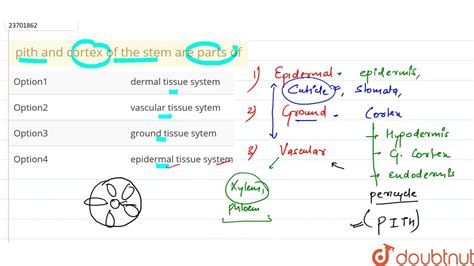 23701862
pith and cortex of the stem are parts of
Option1 dermal tissue sytem
Option2 vascular tissue sytem
Option3 ground tissue sytem
Option4 epidermal tissue sytem
1) Epidermal. epidermis,
Cuticle, stomata,
2) Ground. Cortex
Hypodermis
G. Cortex
endodermis
3) Vascular
pericycle
(PITH)
Xylem,
phloem
doubtnut